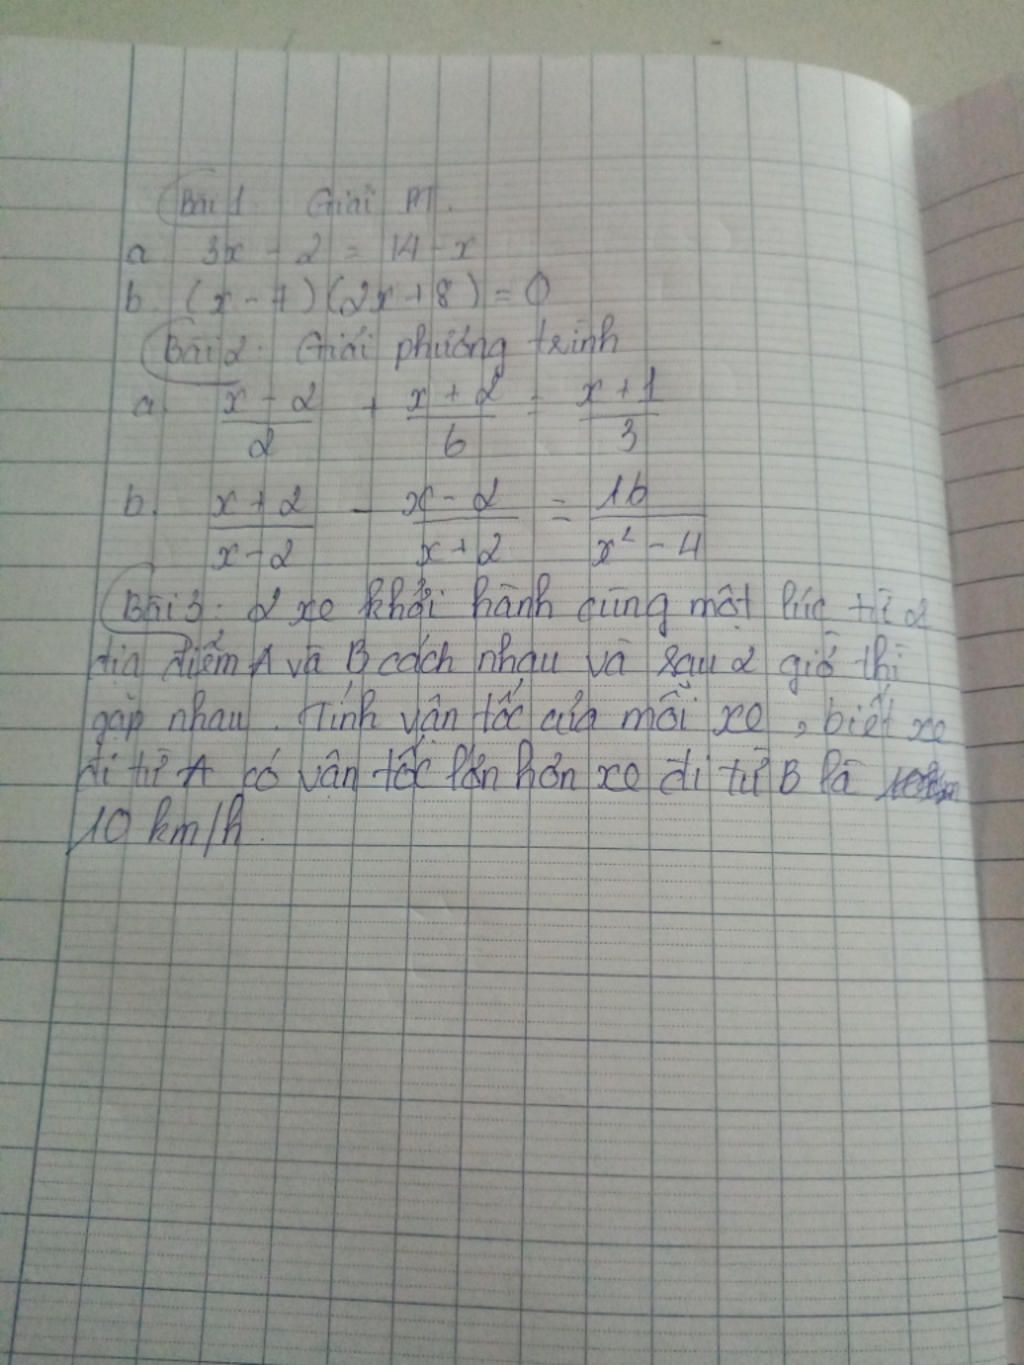 Bài 1 Giải PT.
a 3x - 2 = 14 - x
b. (x - 7)(2x + 8) = 0
Bài 2. Giải phương trình
a x - 2 / 2 + x + 2 / 6 = x + 1 / 3
b. x + 2 / x - 2 - x - 2 / x + 2 = 16 / x² - 4
Bài 3: 2 xe khởi hành cùng một lúc từ 2
địa điểm A và B cách nhau và sau 2 giờ thì
gặp nhau. Tính vận tốc của mỗi xe, biết xe
đi từ A có vận tốc lớn hơn xe đi từ B là
10 km/h.